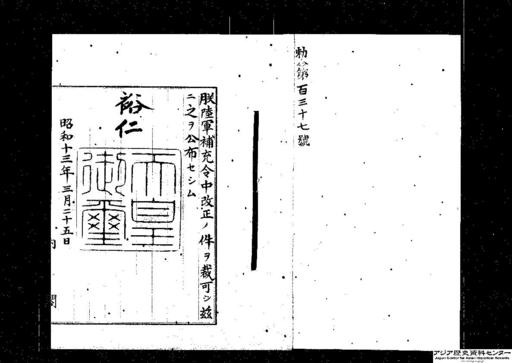 勅令第百三十七號
朕陸軍補充令中改正ノ件ヲ裁可シ玆
ニ之ヲ公布セシム
裕仁
天皇
御璽
昭和十三年三月二十五日
内閣
アジア歴史資料センター
Japan Center for Asian Historical Records